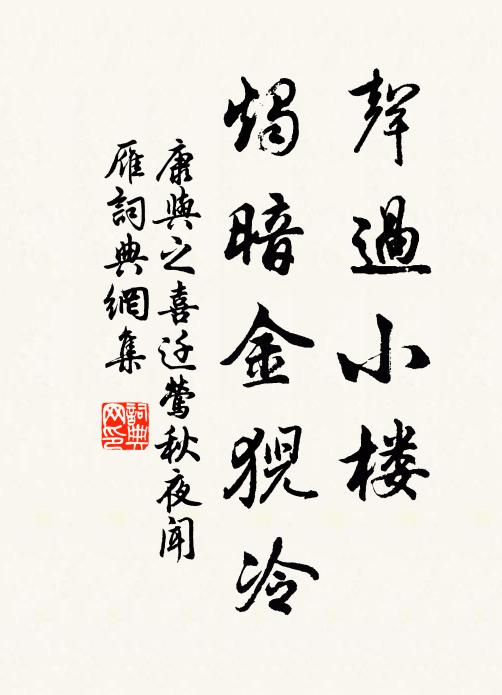 聲過小楼
燭暗金猊冷
康與之喜迁鶯秋夜聞
雁詞典網集
詞典网印